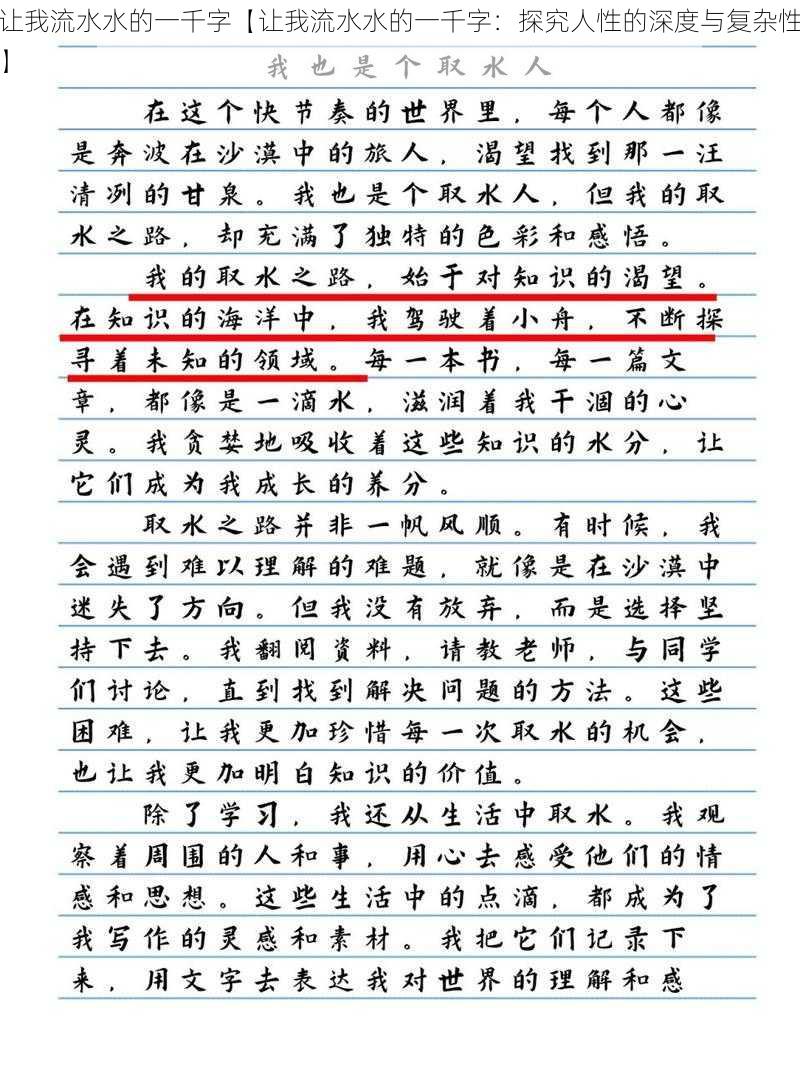 让我流水水的一千字【让我流水水的一千字：探究人性的深度与复杂性
】
我也是个取水人
在这个快节奏的世界里，每个人都像
是奔波在沙漠中的旅人，渴望找到那一汪
清冽的甘泉。我也是个取水人，但我的取
水之路，却充满了独特的色彩和感悟。
我的取水之路，始于对知识的渴望。
在知识的海洋中，我驾驶着小舟，不断探
寻着未知的领域。每一本书，每一篇文
章，都像是一滴水，滋润着我干涸的心
灵。我贪婪地吸收着这些知识的水分，让
它们成为我成长的养分。
取水之路并非一帆风顺。有时候，我
会遇到难以理解的难题，就像是在沙漠中
迷失了方向。但我没有放弃，而是选择坚
持下去。我翻阅资料，请教老师，与同学
们讨论，直到找到解决问题的方法。这些
困难，让我更加珍惜每一次取水的机会，
也让我更加明白知识的价值。
除了学习，我还从生活中取水。我观
察着周围的人和事，用心去感受他们的情
感和思想。这些生活中的点滴，都成为了
我写作的灵感和素材。我把它们记录下
来，用文字去表达我对世界的理解和感